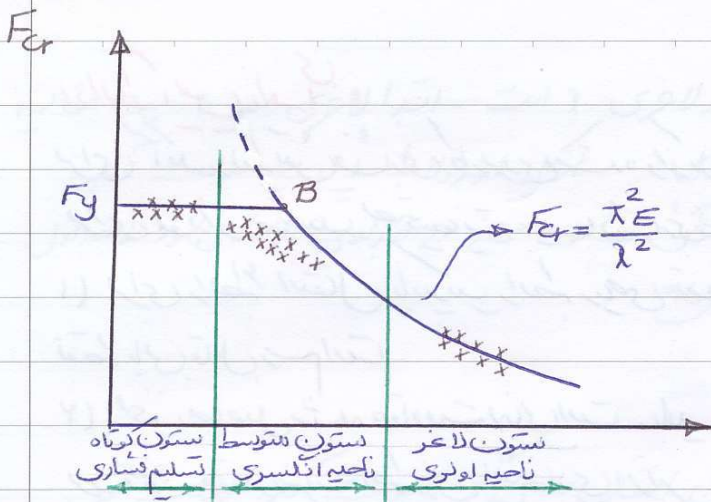 Fcr
Fy
B
Fcr = π²E / λ²
ستون کوتاه
تسلیم فشاری
ستون متوسط
ناحیه انگسری
ستون لاغر
ناحیه اولری